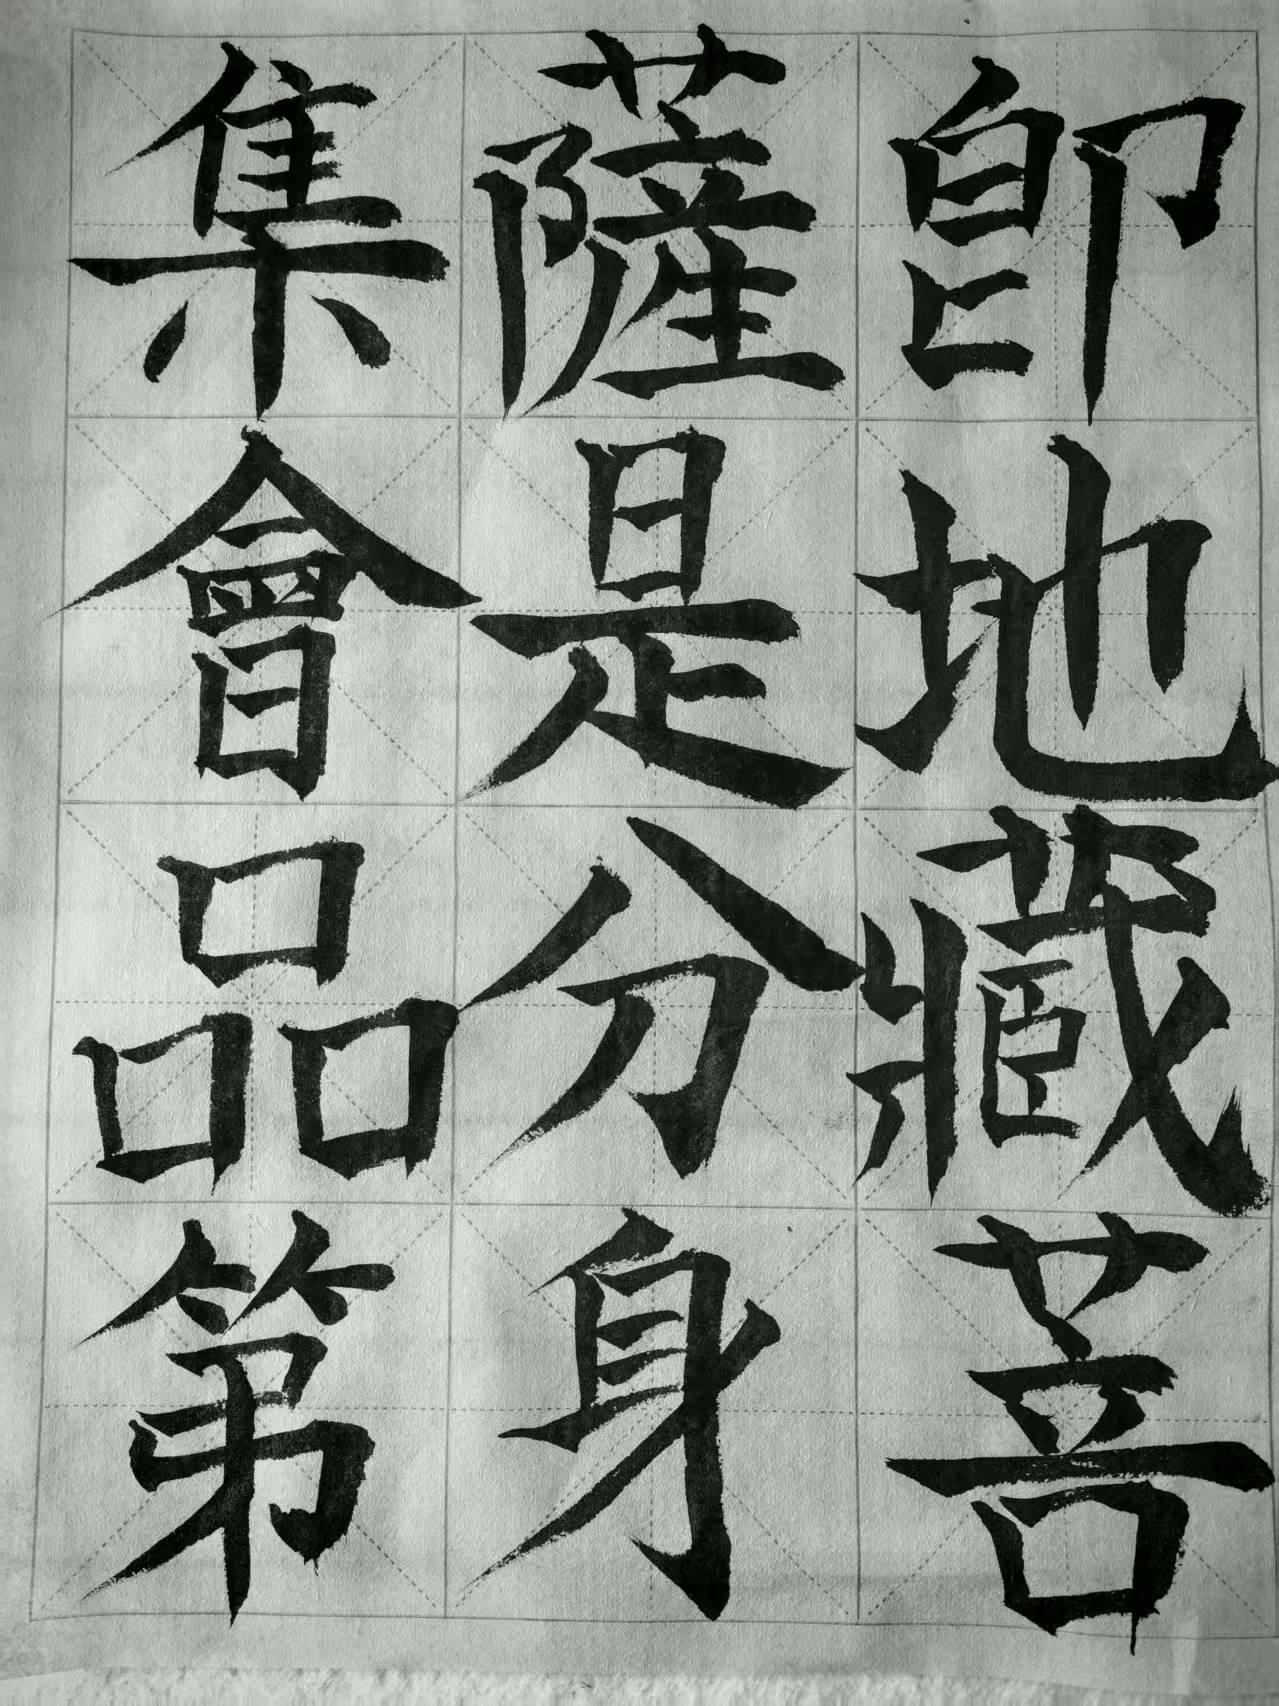 即地藏菩
薩是分身
集會品第